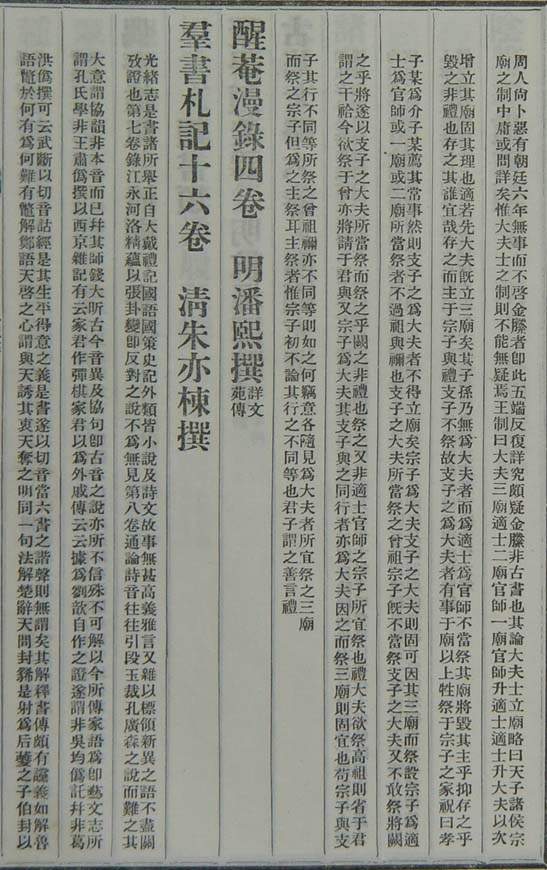 周人尚卜惡有朝廷六年無事而不啓金縢者卽此五端反復詳究頗疑金縢非古書也其論大夫士立廟略曰天子諸侯宗
廟之制中庸或問詳矣惟大夫士之制則不能無疑焉王制曰大夫三廟適士二廟官師一廟官師升適士適士升大夫以次
增立其廟固其理也適若先大夫旣立三廟矣其子孫乃無爲大夫者而爲適士爲官師不當祭其廟將毀其主乎抑存之乎
毀之非禮也存之其誰宜哉存之而主于宗子與禮支子不祭故支子之爲大夫者有事于廟以上牲祭于宗子之家祝曰孝
子某爲介子某薦其常事然則支子之爲大夫者不得立廟矣宗子爲大夫則固可因其三廟而祭設宗子爲適
士爲官師或一廟或二廟所當祭者不過祖與禰也支子之大夫所當祭之曾祖宗子旣不當祭支子之大夫又不敢祭將闕
之乎將遂以支子之大夫所當祭而祭之乎闕之非禮也祭之又非適士官師之宗子所宜祭也禮大夫欲祭高祖則省于君
謂之干祫今欲祭于曾亦將請于君與又宗子爲大夫其支子與之同行者亦爲大夫因之而祭三廟則固宜也苟宗子與支
子其行不同等所祭之曾祖禰亦不同等則如之何竊意各隨見爲大夫者所宜祭之三廟
而祭之宗子但爲之主祭耳主祭者惟宗子初不論其行之不同等也君子謂之善言禮
醒菴漫錄四卷 明潘熙撰 詳文苑傳
羣書札記十六卷 清朱亦棟撰
光緒志是書諸所舉正自大戴禮記國語國策史記外類皆小說及詩文故事無甚高義雅言又雜以標領新異之語不盡關
攷證也第七卷錄江永河洛精蘊以張卦變卽反對之說不爲無見第八卷通論詩音往往引段玉裁孔廣森之說而難之其
大意謂協韻非本音而已幷其師錢大昕古今音異及協句卽古音之說亦所不信殊不可解以今所傳家語爲卽藝文志所
謂孔氏學非王肅僞撰以西京雜記有云家君作彈棋家君以爲外戚傳云云據爲劉歆自作之證遂謂非吳均僞託幷非葛
洪僞撰可云武斷以切音詁經是其生平得意之義是書遂以切音當六書之諧聲則無謂矣其解釋書傳頗有讜義如解魯
語鼈於何有爲何難有鼈解鄭語天啓之心謂與天誘其衷天奪之明同一句法解楚辭天問封豨是射爲后夔之子伯封以